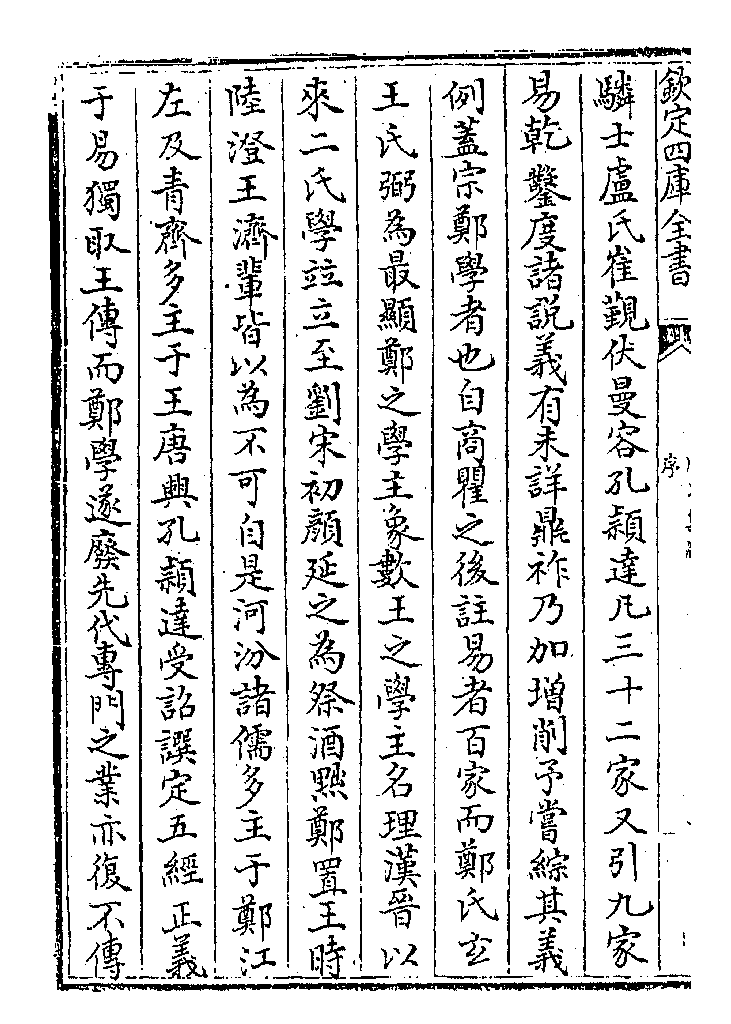 欽定四庫全書
序
驎士盧氏崔覲伏曼容孔頴達凡三十二家又引九家
易乾鑿度諸説義有未詳鼎祚乃加增削予嘗綜其義
例蓋宗鄭學者也自商瞿之後註易者百家而鄭氏𤣥
王氏弼為最顯鄭之學主象數王之學主名理漢晉以
來二氏學竝立至劉宋初顔延之為祭酒黜鄭置王時
陸澄王濟輩皆以為不可自是河汾諸儒多主于鄭江
左及青齊多主于王唐興孔頴達受詔譔定五經正義
于易獨取王傳而鄭學遂廢先代專門之業亦復不傳